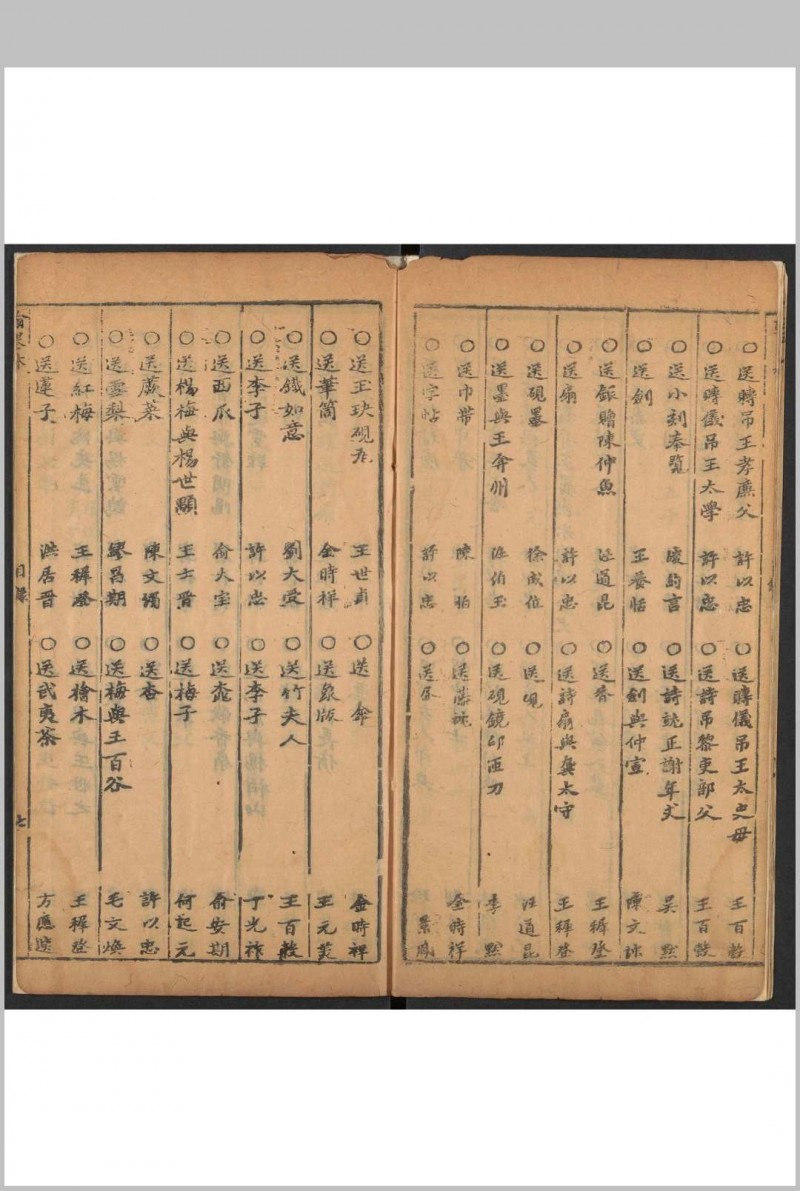 ○送賻吊王孝廉父 許以忠 ○送賻儀吊王太史母 王百穀
○送賻儀吊王太學 許以忠 ○送詩吊黎吏部父 王百穀
○送小刻奉覽 言 ○送詩就正謝年丈 吳默
○送劍 王養恬 ○送劍與仲宣 陳文
○送銀贈陳仲魚 汪道昆 ○送香 王穉登
○送扇 許以忠 ○送詩扇與龔太守 王穉登
○送硯墨 徐成位 ○送硯 汪道昆
○送墨與王弇州 汪伯玉 ○送硯鏡印匣刀 李默
○送巾帶 陳柏 ○送 金時祥
○送字帖 許以忠 ○送
○送玉玦硯 王世貞 ○送傘 金時祥
○送筆筒 金時祥 ○送 版 王元美
○送鐵如意 劉大受 ○送竹夫人 王百穀
○送李子 許以忠 ○送李子 丁光祚
○送西瓜 俞大室 ○送 俞安期
○送楊梅與楊世顯 王士晋 ○送梅子 何起元
○送蕨菜 陳文燭 ○送杏 許以忠
○送雪梨 繆昌期 ○送梅與王百谷 毛文煥
○送紅梅 王穉登 ○送檜木 王穉登
○送蓮子 洪居晋 ○送武夷茶 方應選
目錄 七